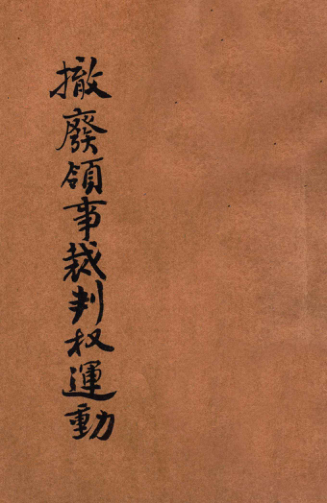 撤廢領事裁判权運動